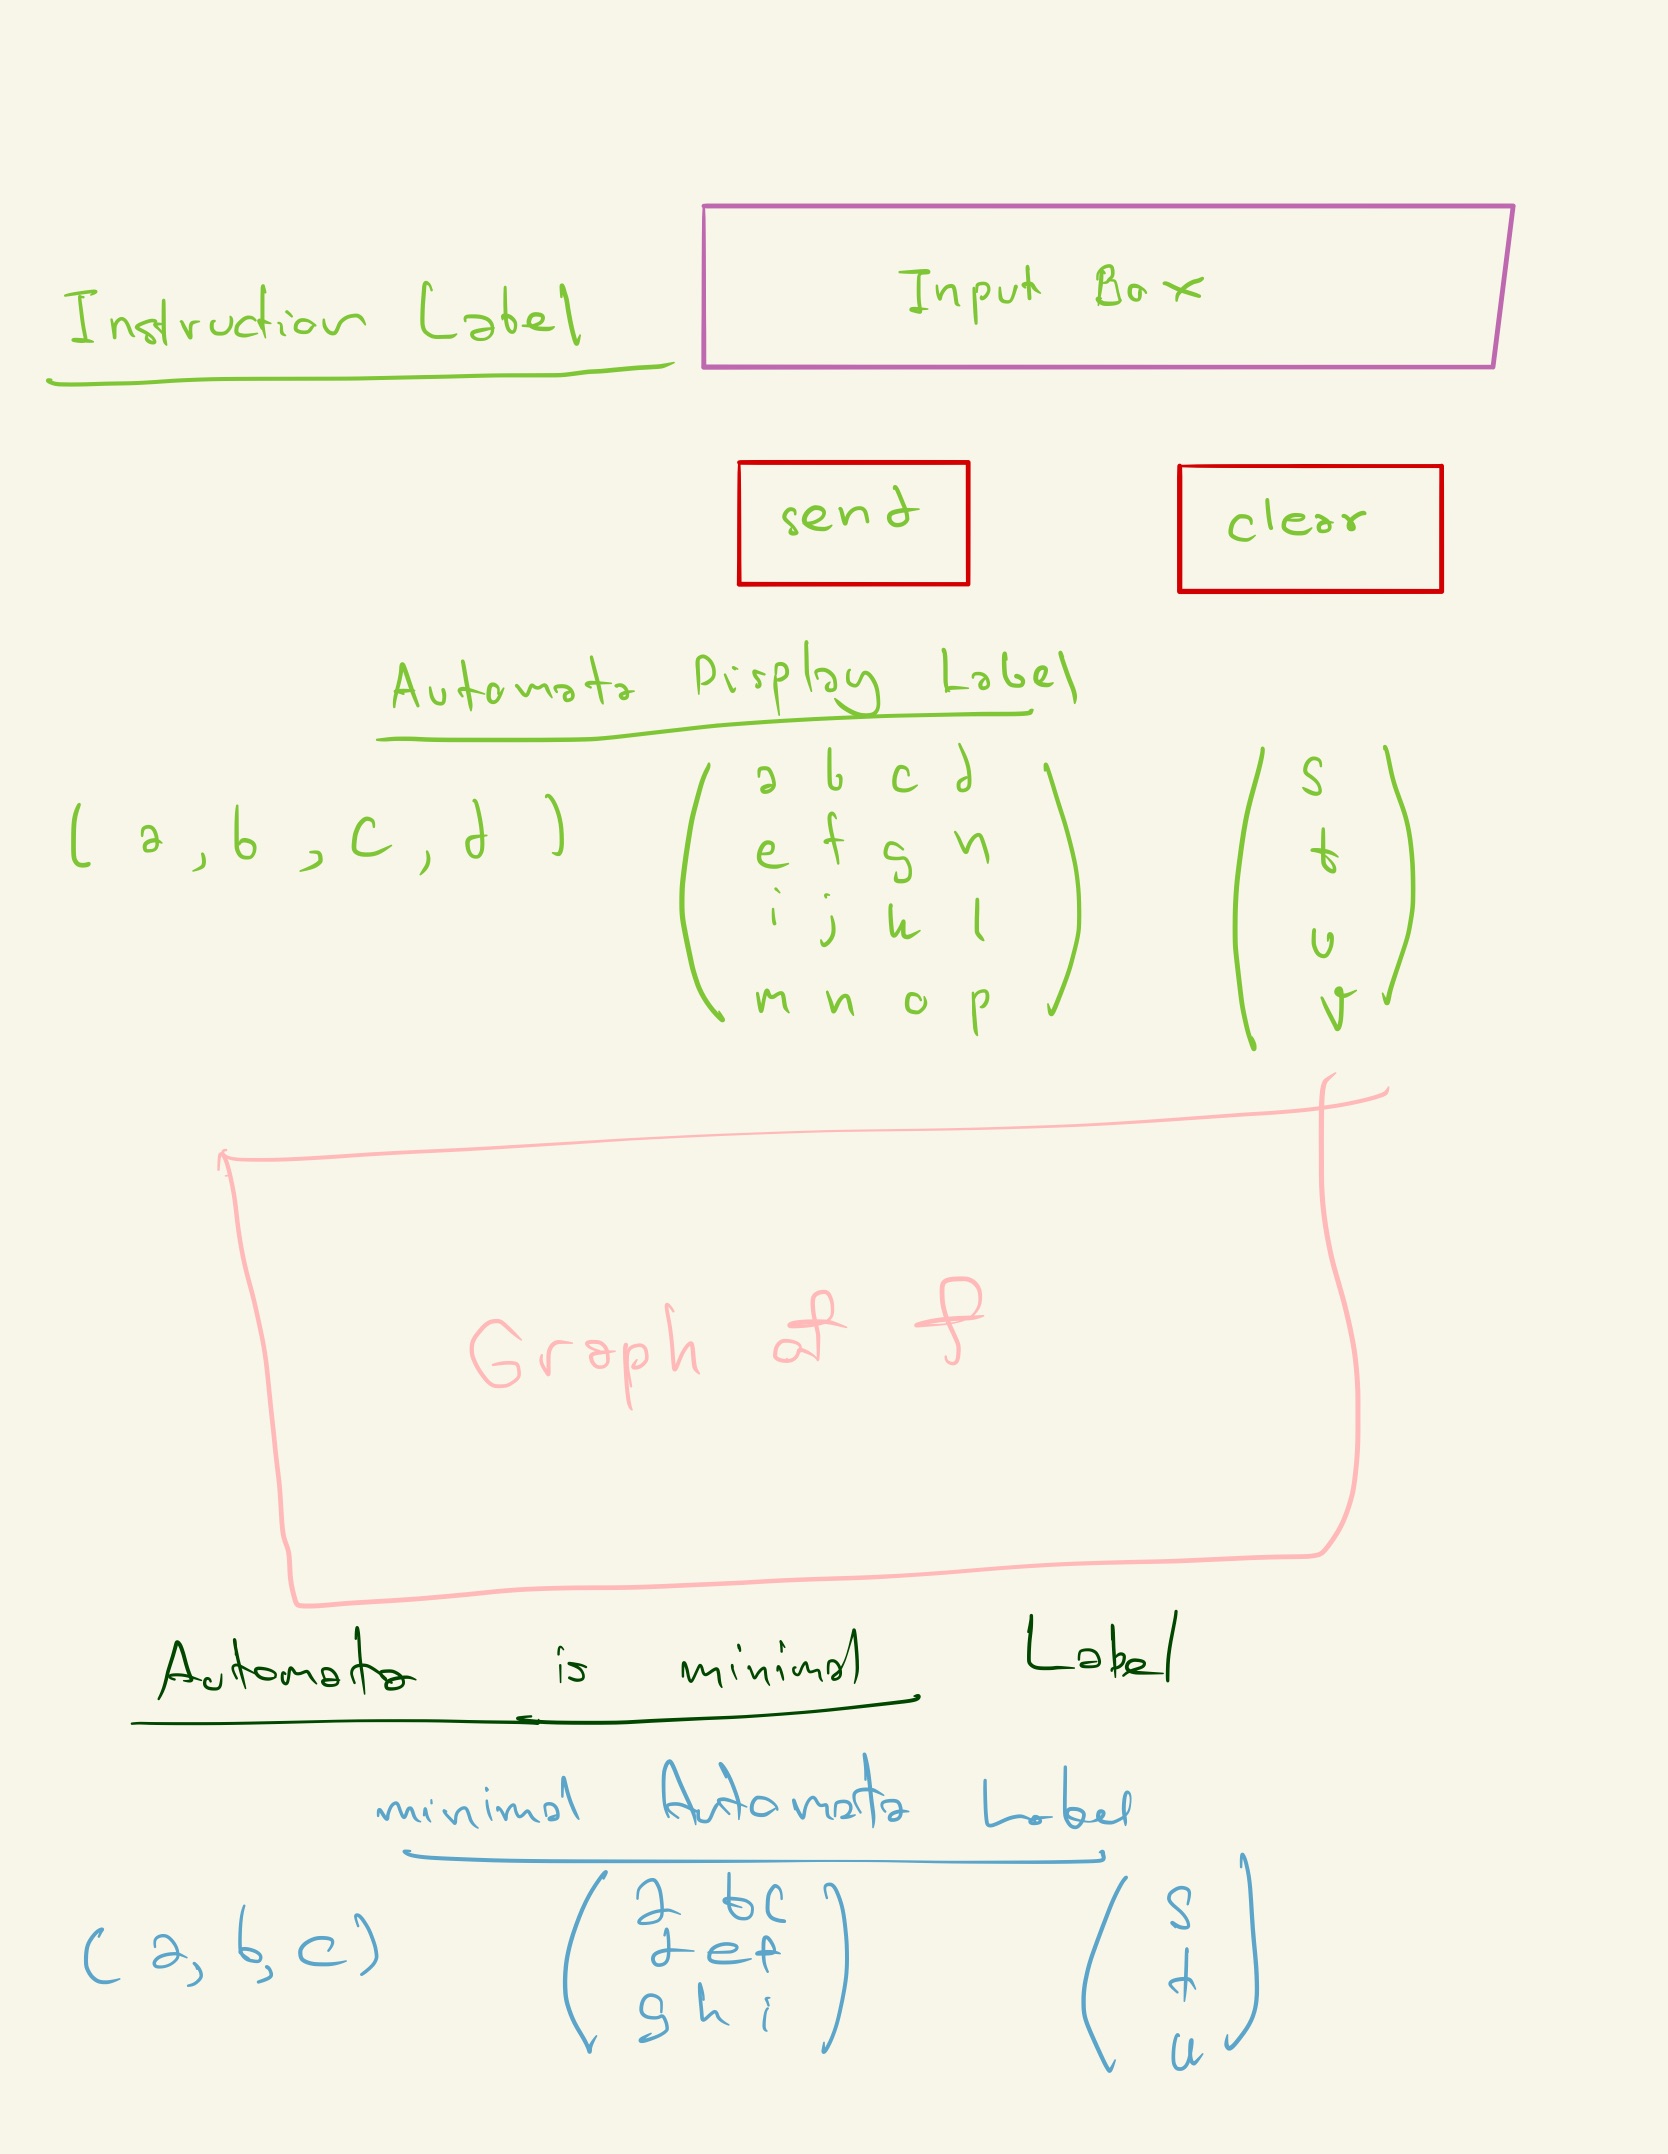 Input Box
Instruction Label
send clear
Automata Display Label
(a, b, c, d)
a b c d
e f g h
i j k l
m n o p
s
t
u
v
Graph of f
Automata is minimal Label
minimal Automata Label
(a, b, c)
a b c
d e f
g h i
s
t
u